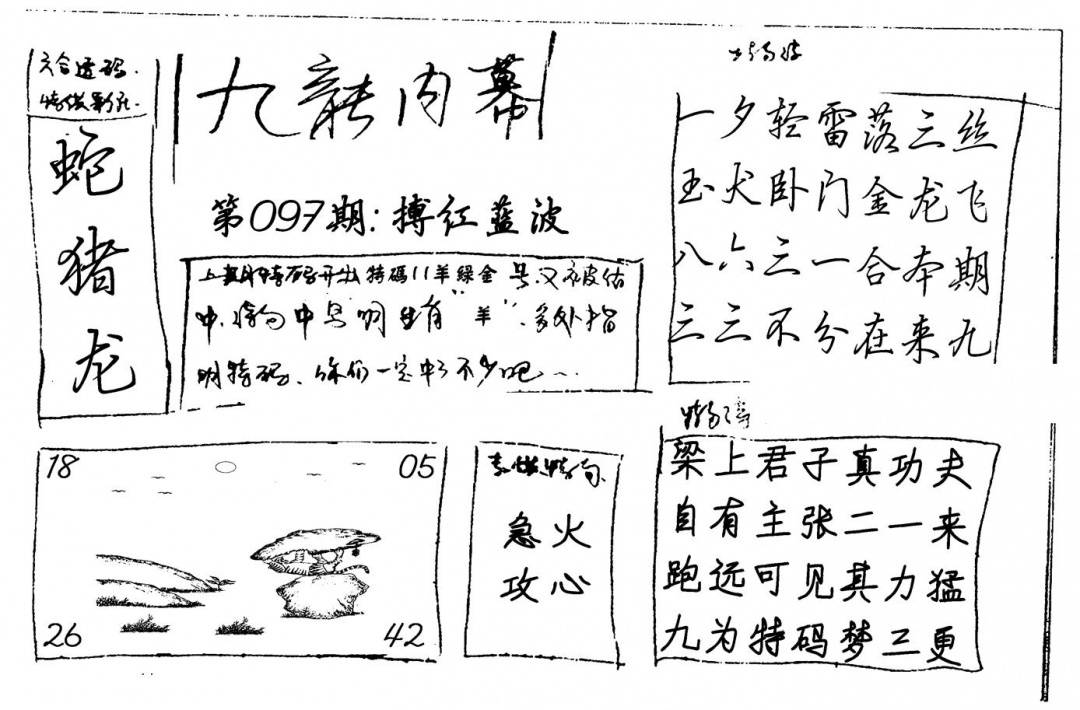 六合透码.
蛇
猪
龙
九龍内幕
第097期:搏红蓝波
上期特码开出特碼11羊綠金号又被估
中.特句中早明生肖"羊".多处指
明特码、你们一定中了不少吧~
一夕轻雷落三丝
玉犬卧门金龙飞
八六三一合本期
三三不分在来九
18
05
26
42
急火
攻心
梁上君子真功夫
自有主张二一来
跑远可见其力猛
九为特码梦三更